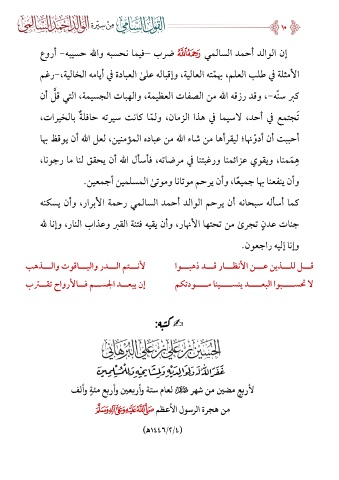 ١٠ القول السامي من سيرة الوالد أحمد السالمي
إن الوالد أحمد السالمي رَحِمَهُ اللهُ ضرب -فيما نحسبه والله حسيبه- أروع
الأمثلة في طلب العلم، بهمته العالية، وإقباله على العبادة في أيامه الخالية، -رغم
كبر سنّه-، وقد رزقه الله من الصفات العظيمة، والهبات الجسيمة، التي قلَّ أن
تُجتمع في أحد، لاسيما في هذا الزمان، ولمّا كانت سيرته حافلةً بالخيرات،
أحببت أن أدوّنها؛ ليقرأها من شاء الله من عباده المؤمنين، لعل الله أن يوقظ بها
هِمَمنا، ويقوي عزائمنا ورغبتنا في مرضاته، فأسأل الله أن يحقق لنا ما رجونا،
وأن ينفعنا بها جميعًا، وأن يرحم موتانا وموتىٰ المسلمين أجمعين.
كما أسأله سبحانه أن يرحم الوالد أحمد السالمي رحمة الأبرار، وأن يسكنه
جنات عدنٍ تجرىٰ من تحتها الأنهار، وأن يقيه فتنة القبر وعذاب النار، وإنا لله
وإنا إليه راجعون.
قـل للـذين عـن الأنظـار قـد ذهبـوا لأنـتم الـدر واليـاقوت والـذهب
لا تحسـبوا البعـد ينسـينا مـودتكم إن يبعـد الجسـم فـالأرواح تقتـرب
كتبه:
الحسين بن علي بن علي البرهاني
غفر الله له ولوالديه ولمشايخه وللمسلمين
لأربع مضين من شهر لعام ستة وأربعين وأربع مئةٍ وألف
من هجرة الرسول الأعظم صَلَّى اللهُ عَلَيْهِ وَعَلَى آلِهِ وَسَلَّمَ
(١٤٤٦/٢/٤هـ)